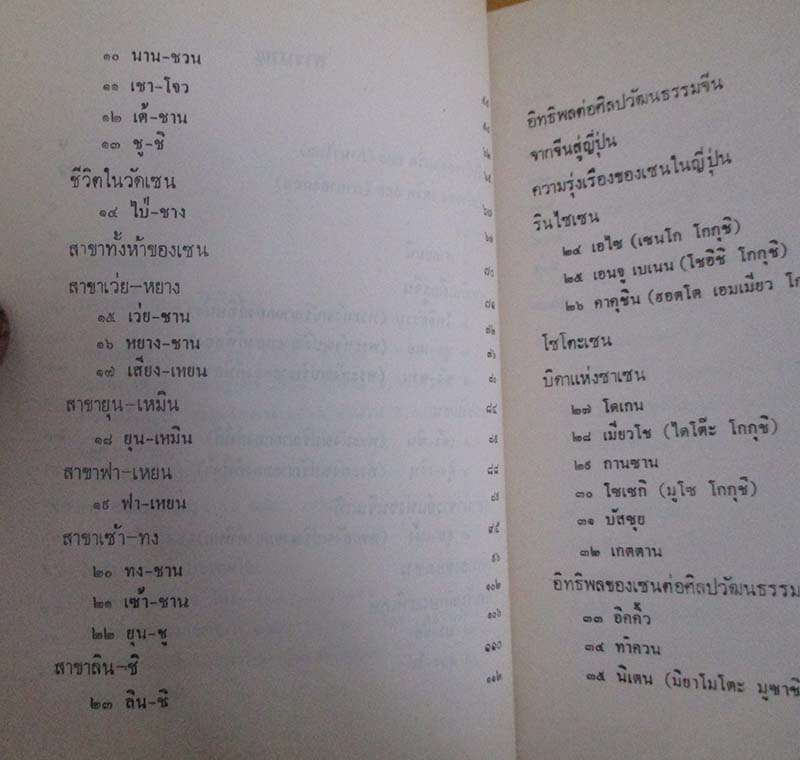 ๑๐ นาน-ชวน
๑๑ เชา-โจว
๑๒ เต้-ชาน
๑๓ ชู-ชิ
ชีวิตในวัดเซน
๑๔ ไป๋-ชาง
สาขาทั้งห้าของเซน ๗๐
สาขาเว่ย-หยาง ๗๑
๑๕ เว่ย-ชาน ๗๒
๑๖ หยาง-ชาน ๗๖
๑๗ เสียง-เหยน ๘๐
สาขายุน-เหมิน ๘๔
๑๘ ยุน-เหมิน ๘๕
สาขาฟา-เหยน ๘๘
๑๙ ฟา-เหยน ๘๙
สาขาเซ้า-ทง ๙๕
๒๐ ทง-ชาน ๙๖
๒๑ เซ้า-ชาน ๑๐๒
๒๒ ยุน-ชู ๑๐๖
สาขาลิน-ชิ ๑๑๐
๒๓ ลิน-ชิ ๑๑๒
อิทธิพลต่อศิลปวัฒนธรรมจีน
จากจีนสู่ญี่ปุ่น
ความรุ่งเรืองของเซนในญี่ปุ่น
รินไซเซน
๒๔ เอไซ (เซนโก โกกุชิ)
๒๕ เอนจู เบเนน (โชอิชิ โกกุชิ)
๒๖ คาคุชิน (ฮอตโต เอมเมียว โก
โซโตะเซน
บิดาแห่งซาเซน
๒๗ โดเกน
๒๘ เมียวโช (ไดโต๊ะ โกกุชิ)
๒๙ กานซาน
๓๐ โซเซกิ (มูโซ โกกุชิ)
๓๑ บัสซุย
๓๒ เกตตาน
อิทธิพลของเซนต่อศิลปวัฒนธรรม
๓๓ อิคคิ้ว
๓๔ ทากวน
๓๕ นิเตน (มิยาโมโตะ มูซาชิ